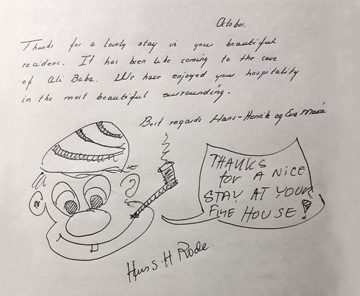 October.
Thanks for a lovely stay in your beautiful
residens. It has been like coming to the cave
of Ali Baba. We have enjoyed your hospitality
in the most beautiful surrounding.
Best regards Hans-Henrik og Eva Maria
THANKS
for A NICE
STAY AT YOUR
FINE HOUSE!
Hans H Rode